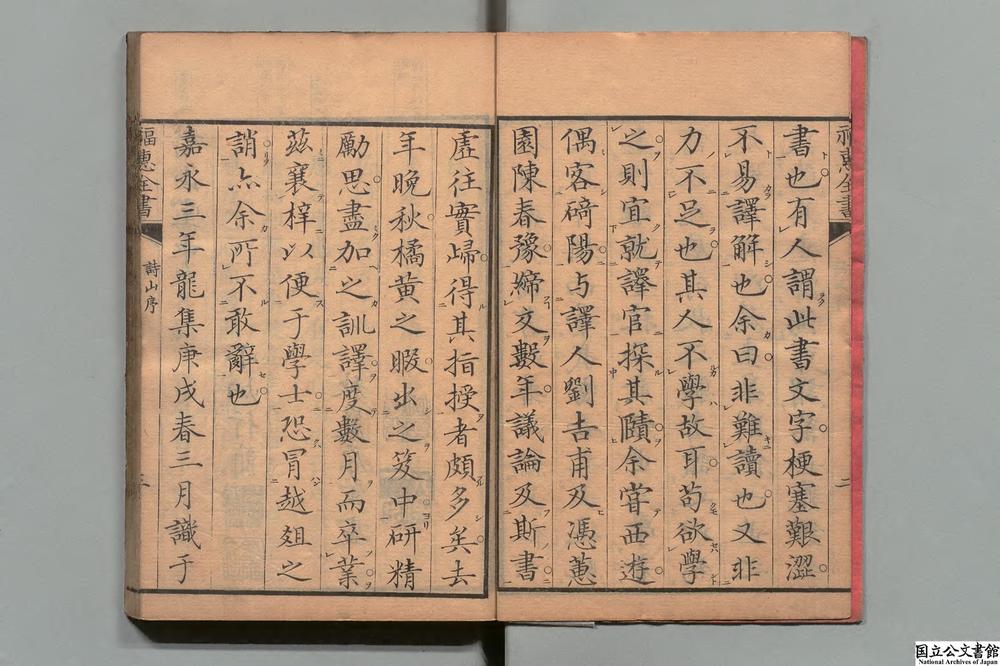 福惠全書
二
書也有人謂此書文字梗塞艱澀
不易譯解也余曰非難讀也又非
力不足也其人不學故耳苟欲學
之則宜就譯官探其賾余嘗西遊
偶客碕陽与譯人劉吉甫及馮蕙
園陳春豫締交數年議論及斯書
虛往實歸得其指授者頗多矣去
年晚秋橘黃之暇出之笈中研精
勵思盡加之訓譯度數月而卒業
茲襄梓以便于學士恐冒越俎之
誚亦余所不敢辭也
嘉永三年龍集庚戌春三月識于
福惠全書
詩山序
三
国立公文書館
National Archives of Japan